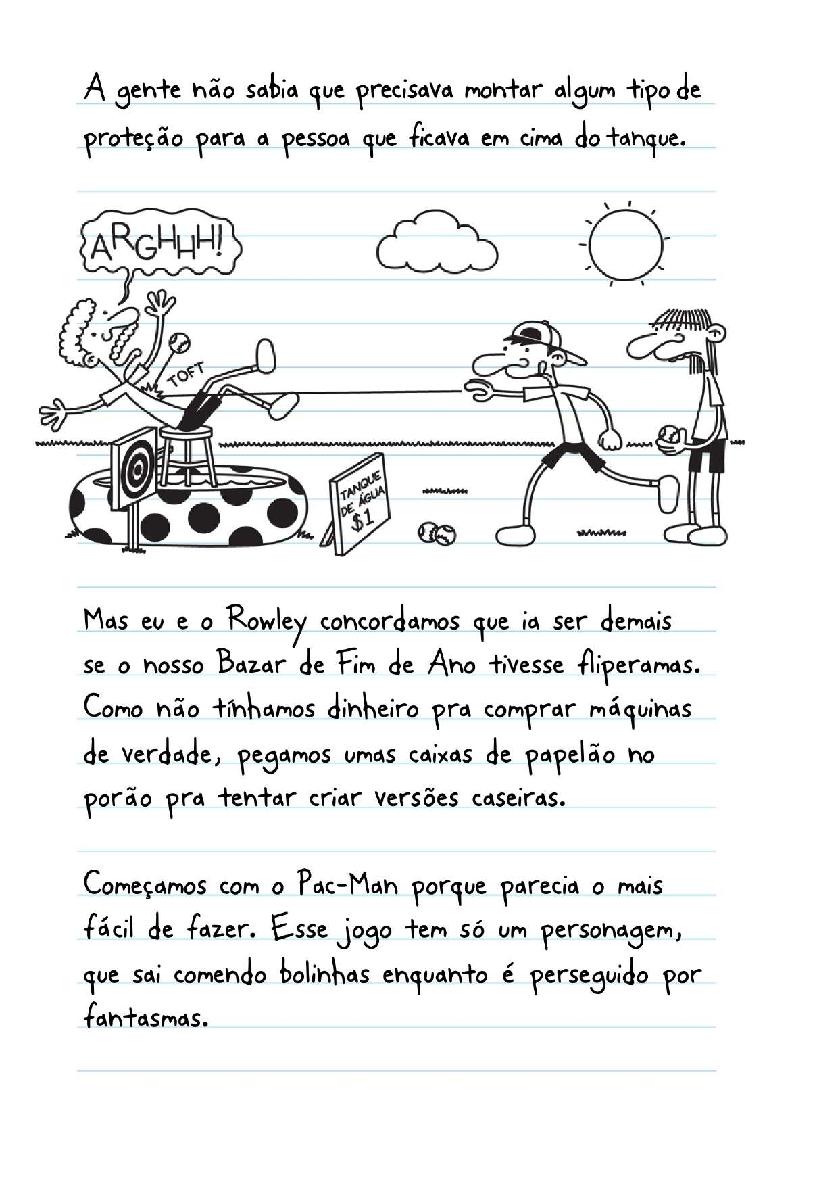 A gente não sabia que precisava montar algum tipo de
proteção para a pessoa que ficava em cima do tanque.
ARGHHH!
TOFT
TANQUE
DE ÁGUA
$1
Mas eu e o Rowley concordamos que ia ser demais
se o nosso Bazar de Fim de Ano tivesse fliperamas.
Como não tínhamos dinheiro pra comprar máquinas
de verdade, pegamos umas caixas de papelão no
porão pra tentar criar versões caseiras.
Começamos com o Pac-Man porque parecia o mais
fácil de fazer. Esse jogo tem só um personagem,
que sai comendo bolinhas enquanto é perseguido por
fantasmas.